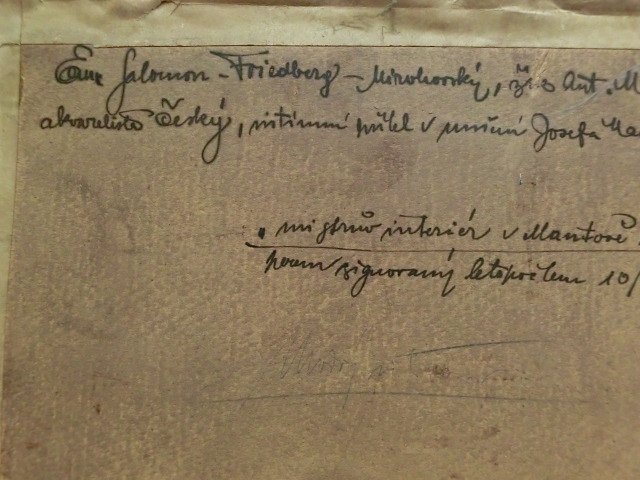 Em. Salomon - Friedberg - Mírohorský, žák Ant. M
akvarelista Český, intimní přítel v umění Josefa Ma
„ mistrův interiér v Mantově
signovaný letopočtem 10/